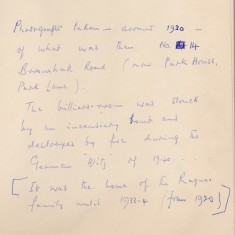 Photographs taken – around 1920 –
of what was then No 14
Road (now Park House,
Park Lane).
The billiard-room was struck
by an incendiary bomb and
destroyed by fire during the
German "Blitz" of 1940...
[It was the home of the
family until 1933-4 (from 1920)]